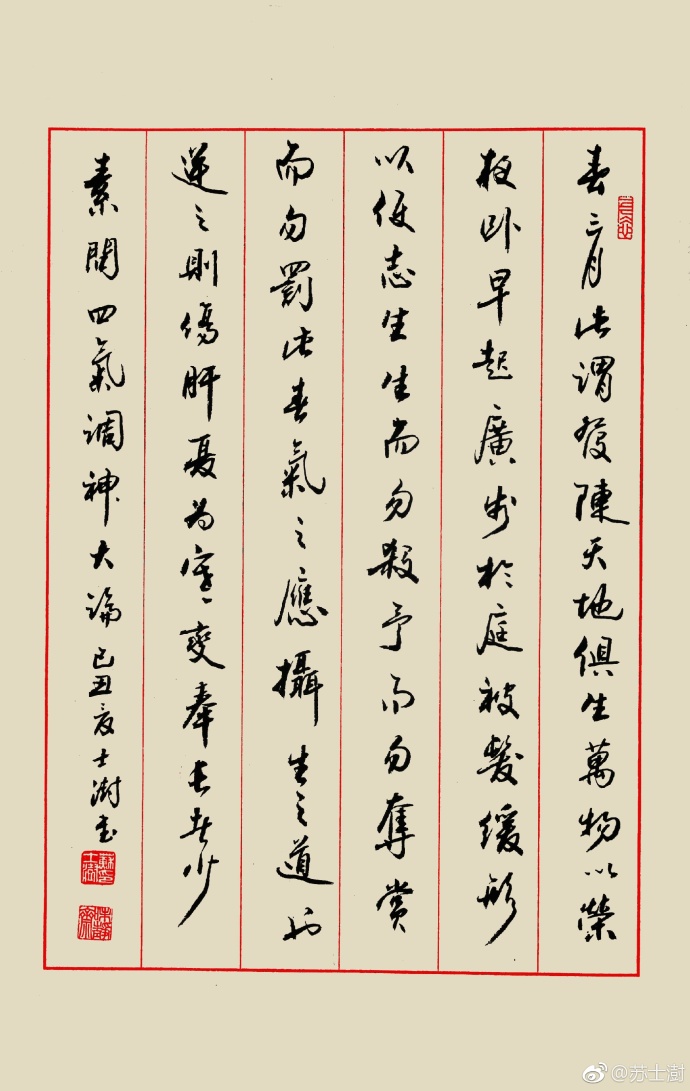 春三月此謂發陳天地俱生萬物以榮
夜卧早起廣步於庭被髮緩形
以使志生生而勿殺予而勿奪賞
而勿罰此春氣之應攝生之道也
逆之則傷肝夏為寒變奉長者少
素問四氣調神大論 己丑夏士澍書
@苏士澍